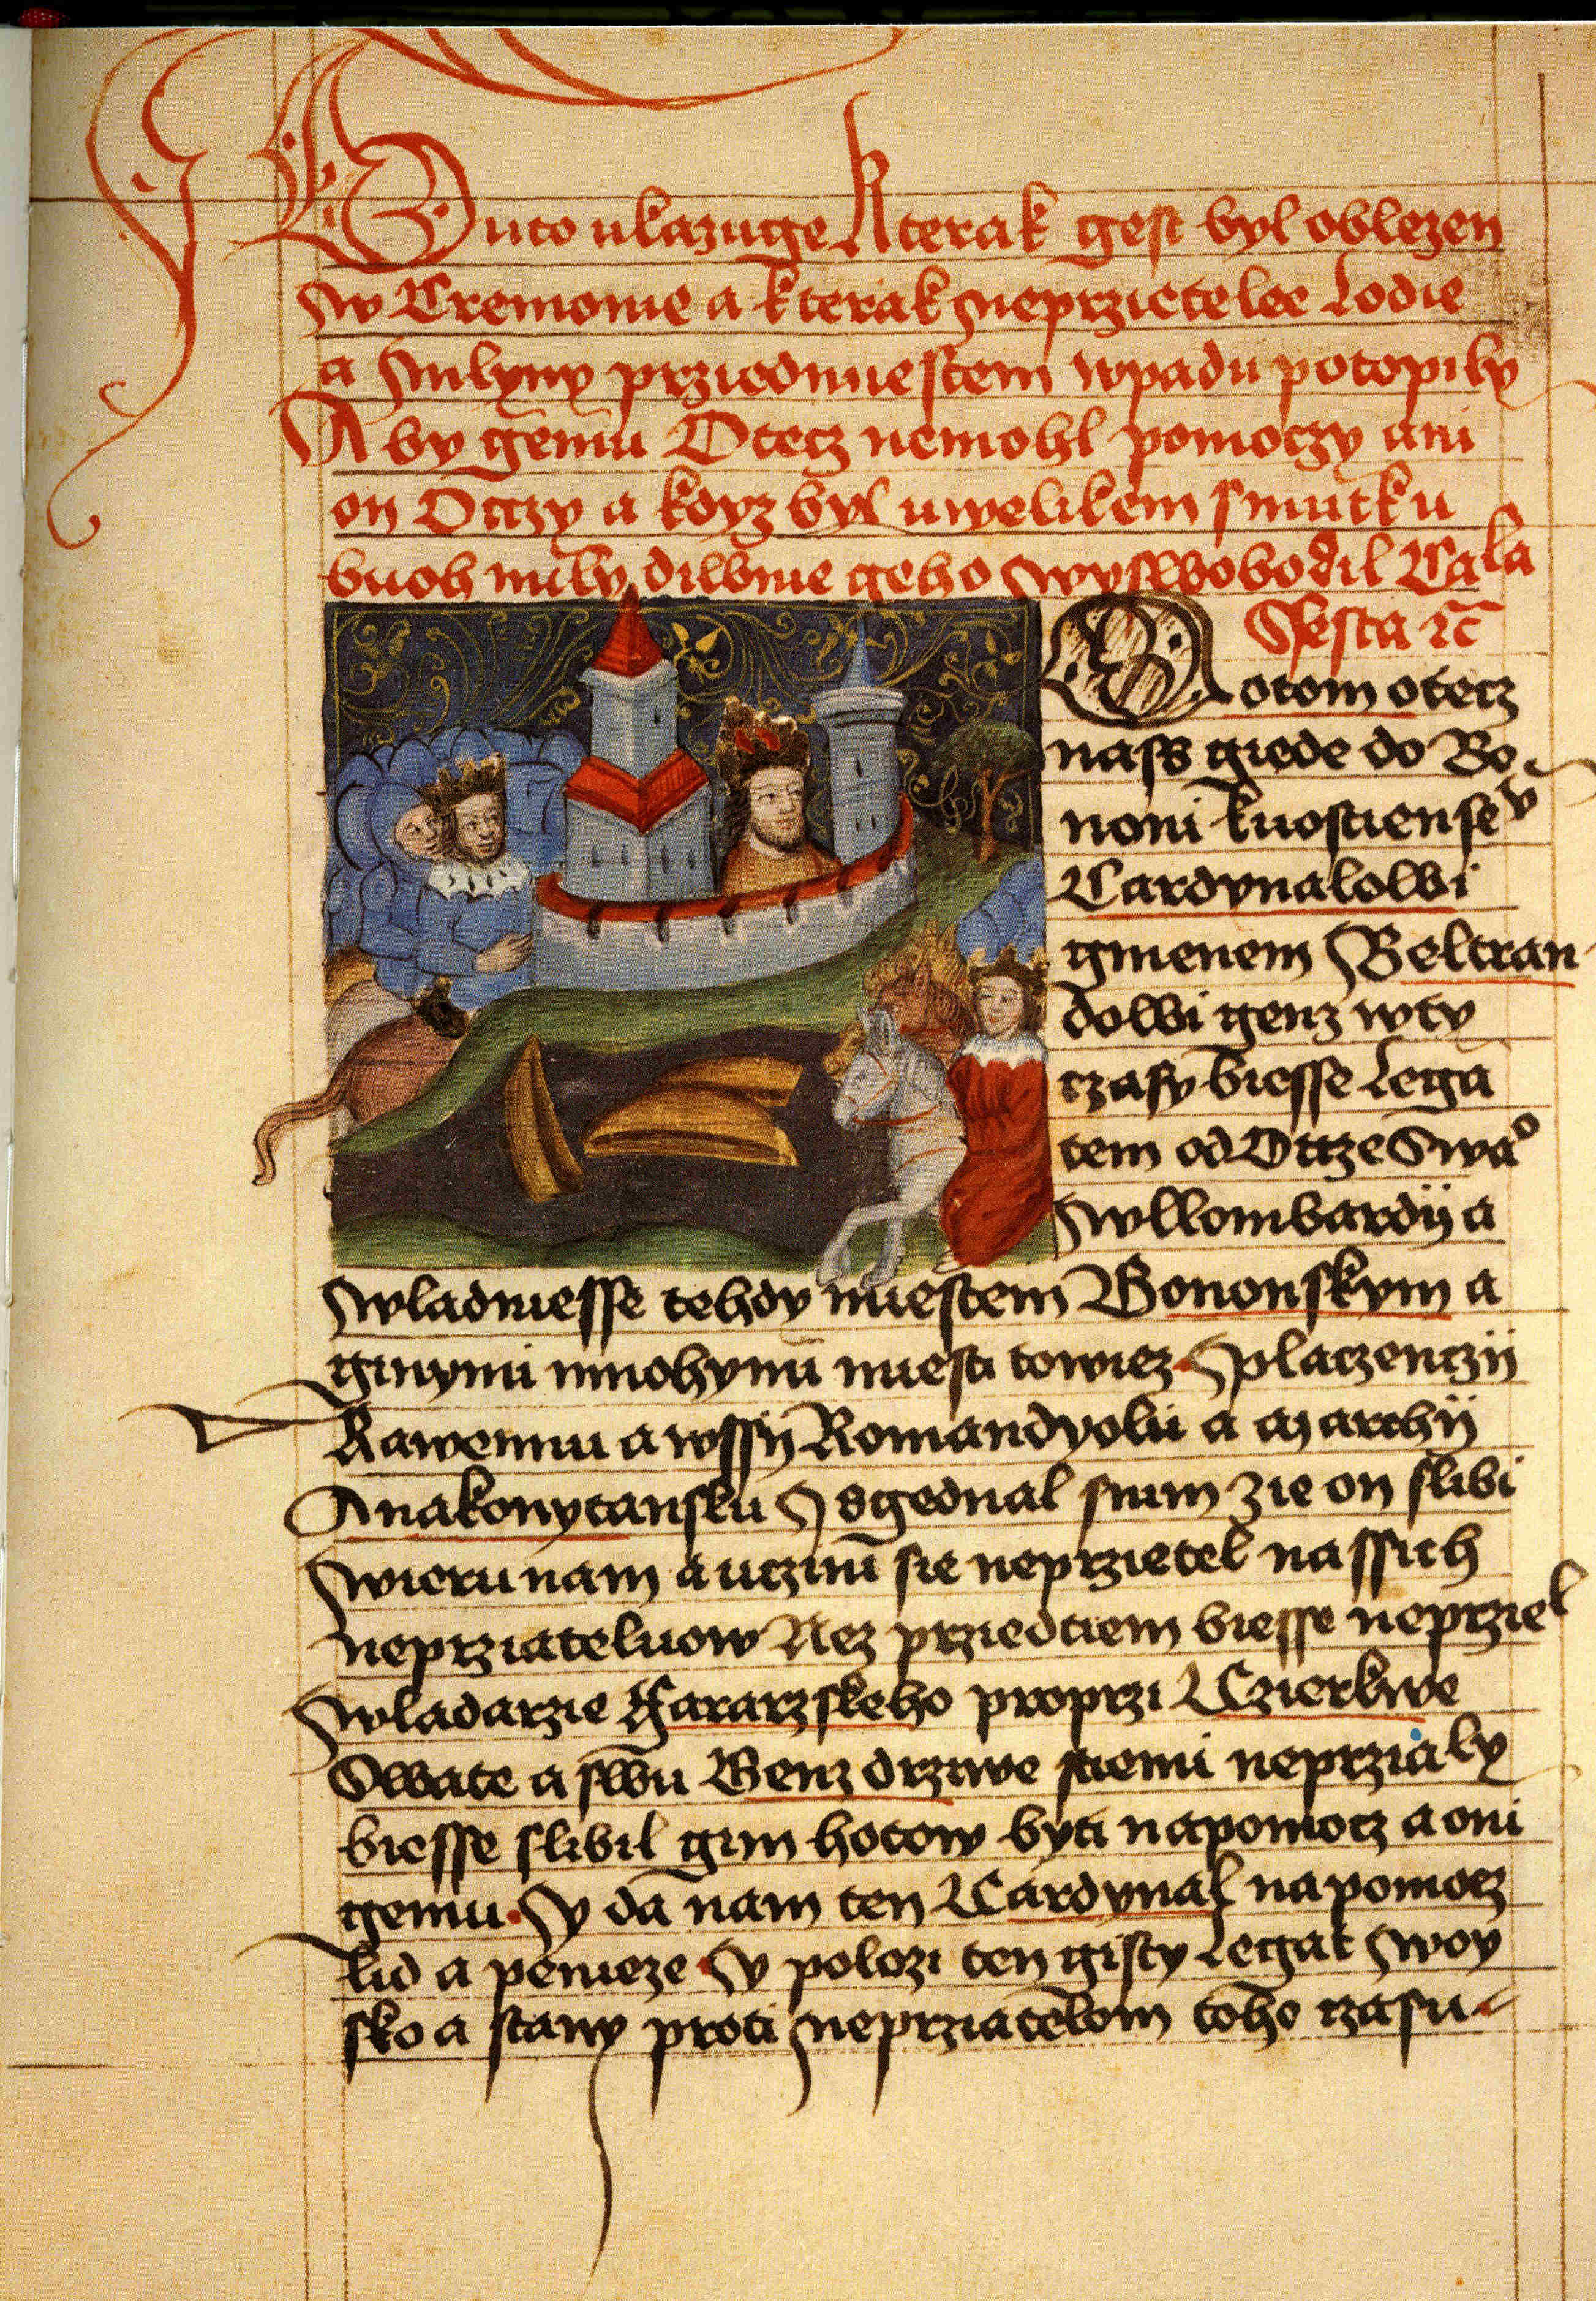 Tuto ukazuge kterak gest byl oblezen
w Cremonie a kterak neprzietelee lodie
a mlyny przied miestem w padu potopily
Aby gemu Otecz nemohl pomoczy ani
on Otczy a kdyz byl uwelikem smutku
buoh mily diwnie geho wyswobodil Cala
Sesta ꝛc̄
Potom otecz
nass giede do Bo
noni k uostiensev
Cardynalowi
gmenem Beltran
dowi genz w ty
czasy biesse lega
tem od Otcze Swaº
w llombardij a
wladniesse tehdy miestem Bononskym a
ginymi mnohymi miesti towiez Placzenczij
Rawennu a wssij Romandyolu a marchij
Anakonytansku sgednal snim zie on slibi
wieru nam a uczini sie neprzietel nassich
neprziateluow Nez prziedtiem biesse neprziel
wladarzie Fararzskeho proprzi Czierkwe
Swate a swu Genz drziwe stiemi neprzialy
biesse slibil gim hotow byti napomocz a oni
gemu y da nam ten Cardynal na pomocz
lid a penieze y polozi ten gisty legat woy
sko a stany proti neprziatelom toho czasu